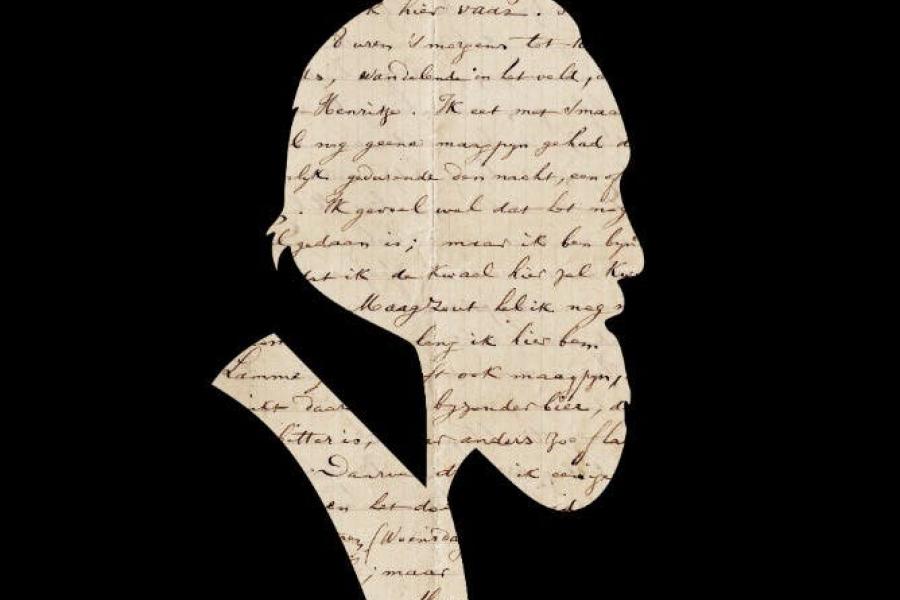 k hier vaar.
8 uren 's morgens tot
wandelende in het veld,
Henritje. Ik eet met smaa
l nog geene maagpyn gehad d
lyk gedurende den nacht, een of
. Ik gevoel wel dat het nog
gedaan is; maar ik ben by
dat ik de kwaal hier zal
Maagzout heb ik nog
lang ik hier ben
Lamme ft ook maagpyn,
ikt daar byzonder bier, d
bitter is, anders zoo fla
Daarv d ik eenige
en het do id
(Woensda
; maar